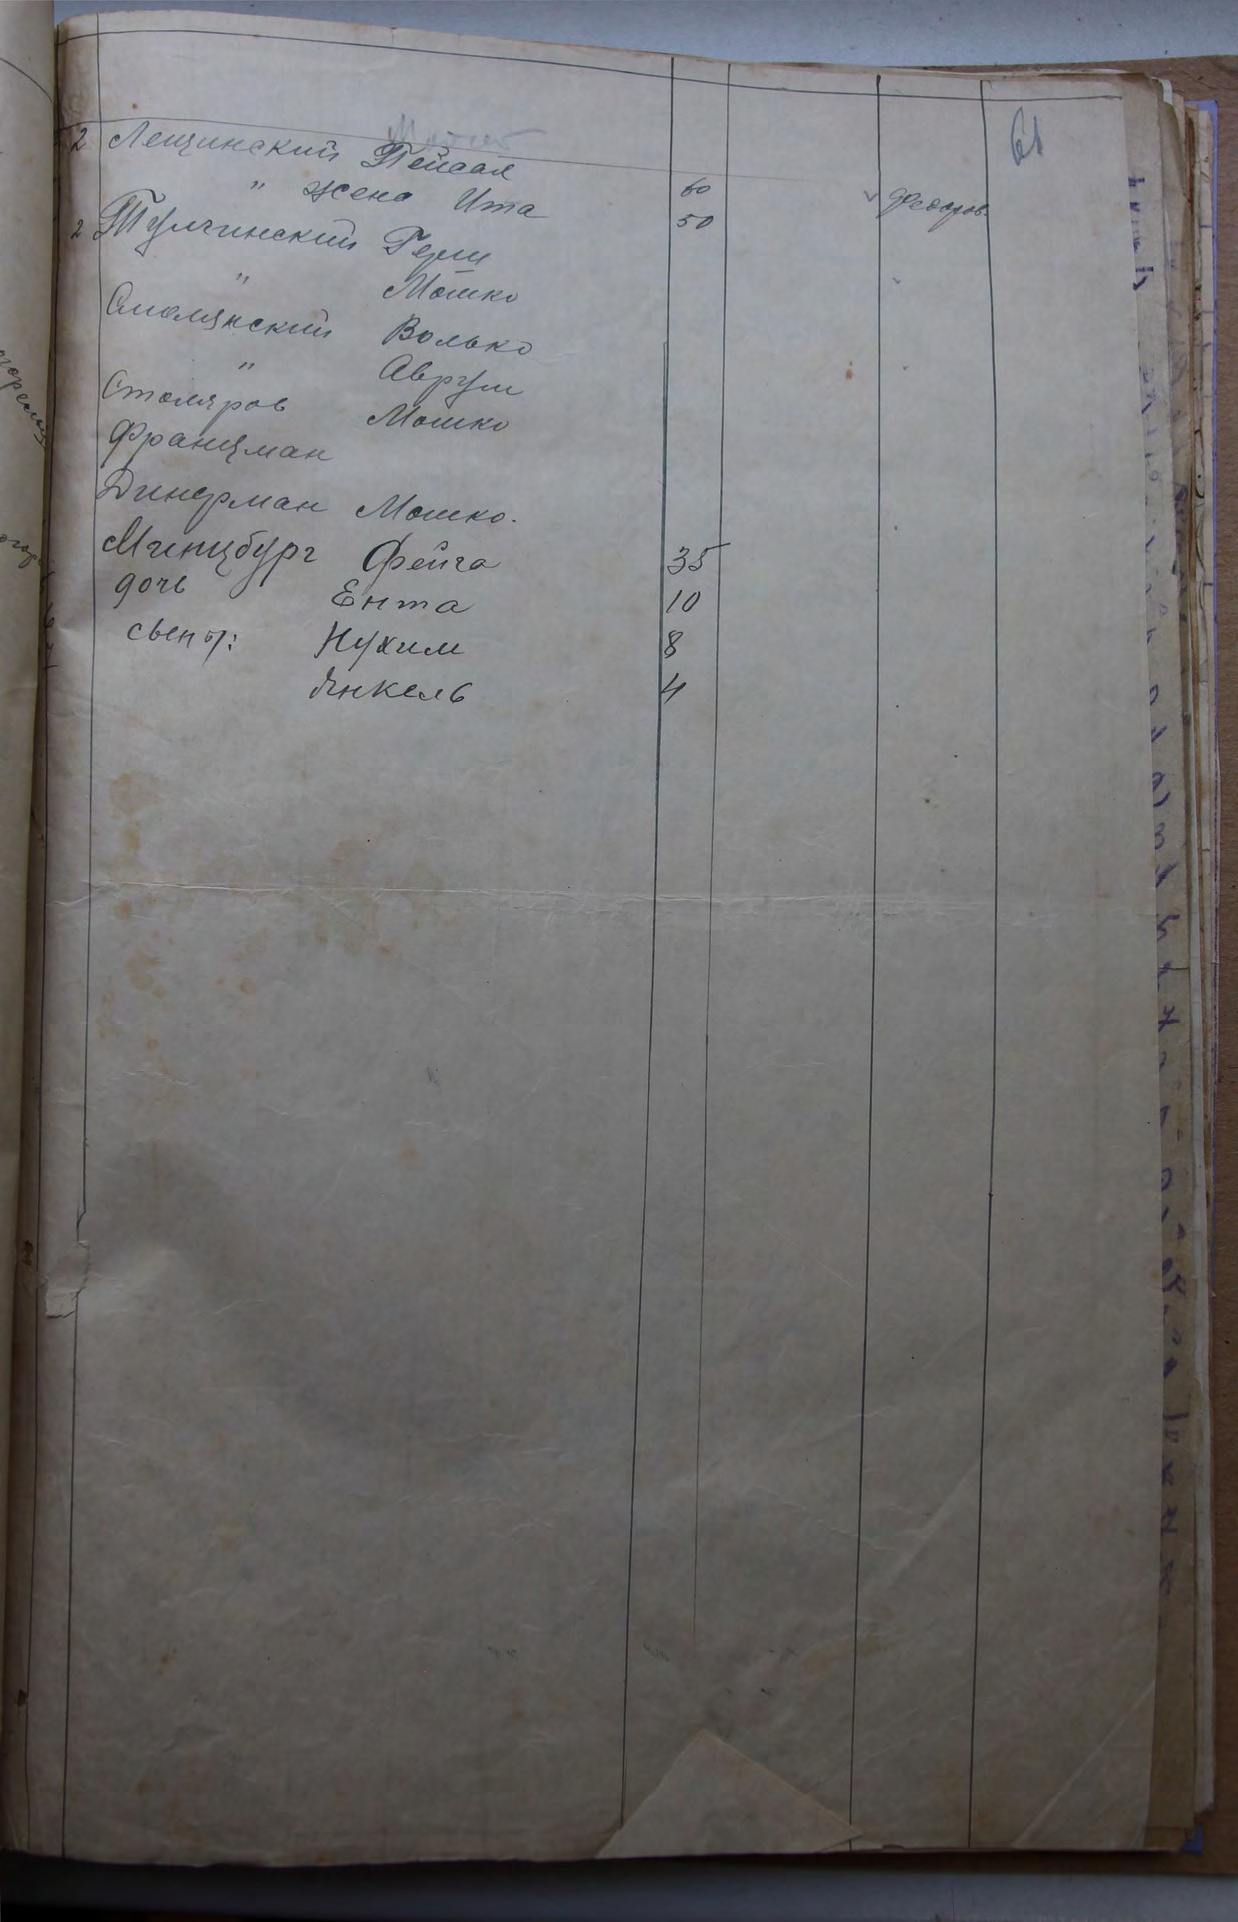 61
2 Лещинский Пейсах
" жена Ита 60 Федоров.
2 Тулчинский Герш 50
" Мошко
Смолянский Волько
" Аврум
Столяров Мошко
Францман
Динерман Мошко.
Минцбург Фейга 35
дочь Ента 10
сыенъ: Нухим 8
Янкель 4